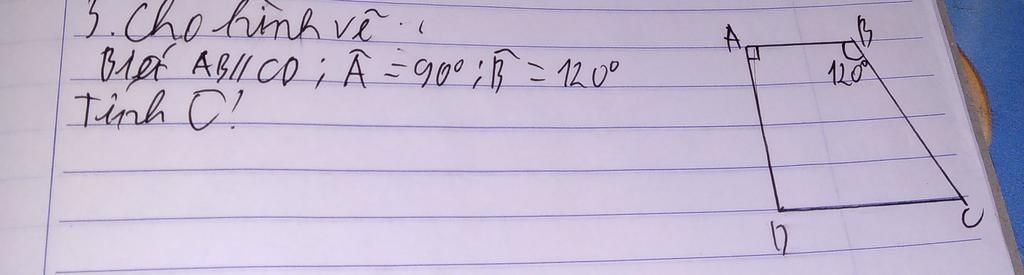 3. Cho hình vẽ :
Biết AB//CD ; Â = 90° ; B̂ = 120°
Tính Ĉ ?
A
B
120°
D
C